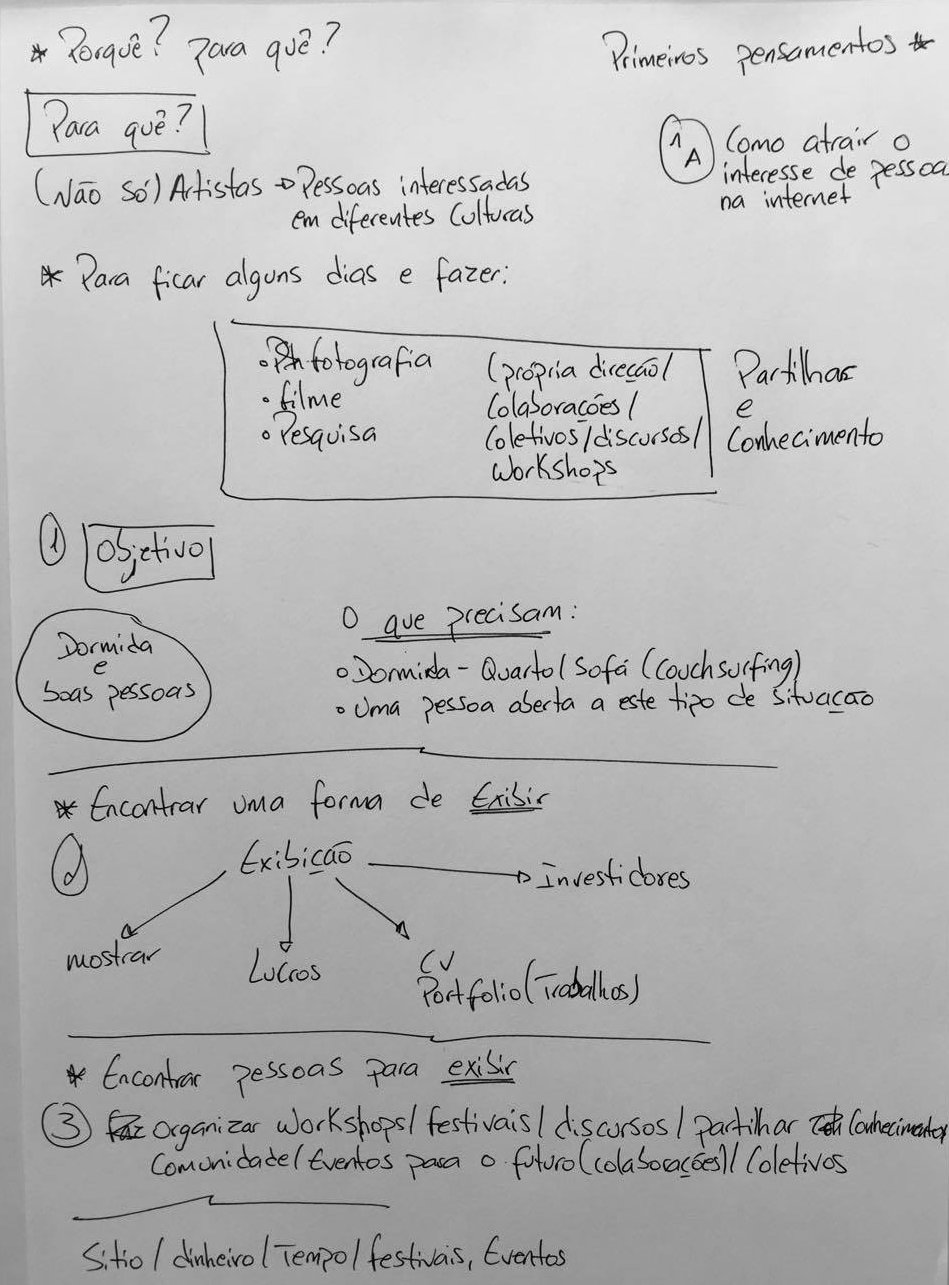 * Porquê? para quê?
Primeiros pensamentos *
Para quê?
1A Como atrair o
interesse de pessoa
na internet
(Não só) Artistas → Pessoas interessadas
em diferentes Culturas
* Para ficar alguns dias e fazer:
• fotografia
• filme
• Pesquisa
(própria direcção/
Colaborações/
Coletivos/discursos/
Workshops
Partilhas
e
Conhecimento
1 Objetivo
Dormida
e
boas pessoas
O que precisam:
• Dormida - Quarto/Sofá (Couchsurfing)
• Uma pessoa aberta a este tipo de situação
* Encontrar uma forma de Exibir
2
Exibição
→ Investidores
mostrar
Lucros
CV
Portfolio (Trabalhos)
* Encontrar pessoas para exibir
3 Faz organizar Workshops/ festivais/ discursos/ partilhar Conhecimentos
Comunidade/ Eventos para o futuro (colaborações)/ Coletivos
Sitio / dinheiro / Tempo / festivais, Eventos